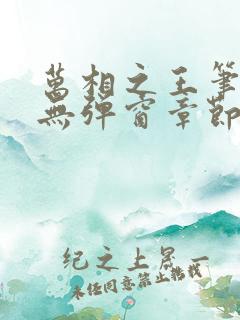 萬相之王筆
無彈窗章節
纪之上晟一
未径同意第止转载